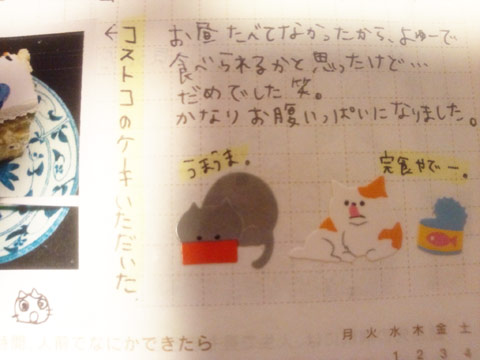 お昼たべてなかったから、よゆーで
食べられるかと思ったけど…
だめでした 笑。
かなりお腹いっぱいになりました。
←コストコのケーキいただいた
うまうま。
完食やでー。
人前でなにかできたら
月 火 水 木 金 土
1 2 3 4